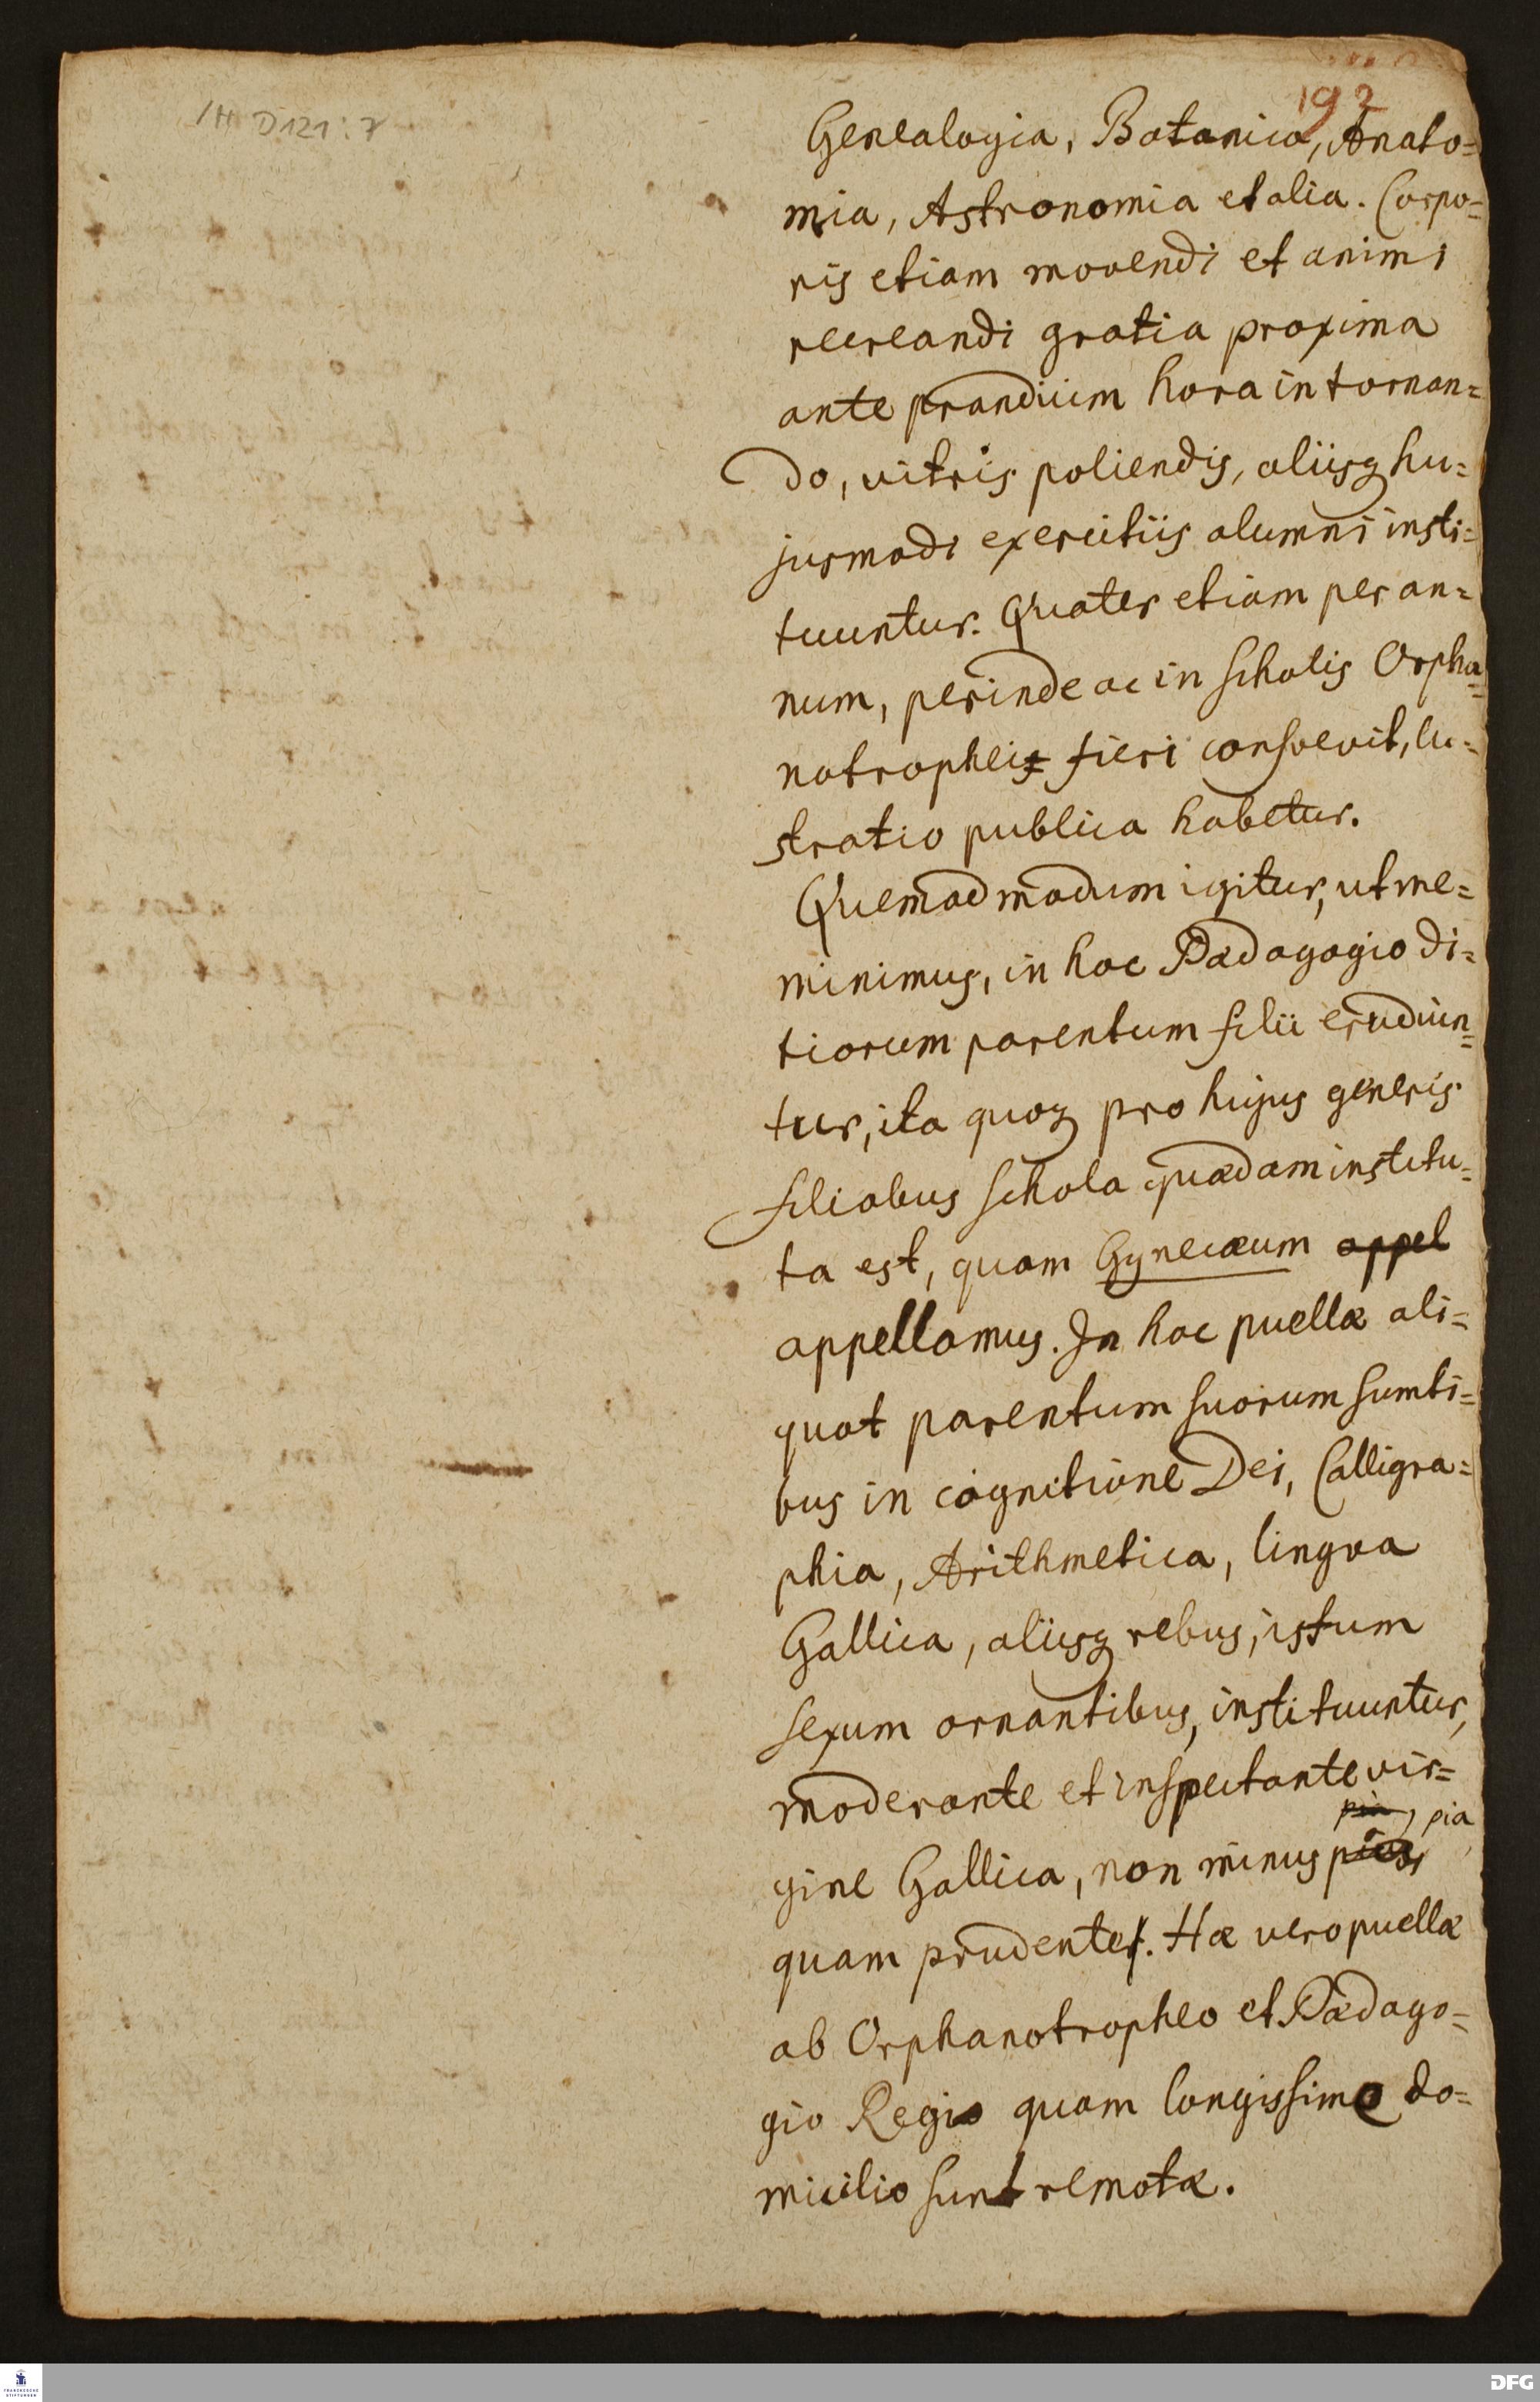 /H D121:7
192
Genealogia, Botanica, Anato=
mia, Astronomia et alia. Corpo=
ris etiam movendi et animi
recreandi gratia proxima
ante prandium hora in tornan=
do, vitris poliendis, aliisq hu=
jusmodi exercitiis alumni insti=
tuuntur. Quater etiam per an=
num, perinde ac in scholis Orpha=
notrophei fieri consvevit, lu=
stratio publica habetur.
Quemadmodum igitur, ut me=
minimus, in hoc Pædagogio di=
tiorum parentum filii erudiun=
tur, ita quoq pro hujus generis
filiabus schola quædam institu=
ta est, quam Gynecæum appel
appellamus. In hac puellæ ali=
quot parentum suorum sumti=
bus in cognitione Dei, Calligra=
phia, Arithmetica, lingva
Gallica, aliisq rebus, istum
sexum ornantibus, instituuntur,
moderante et inspectante vir=
pia, pia
gine Gallica, non minus
quam prudente. Hæ vero puellæ
ab Orphanotropheo et Pædago=
gio Regio quam longissime do=
micilio sunt remotæ.
FRANCKESCHE
STIFTUNGEN
DFG